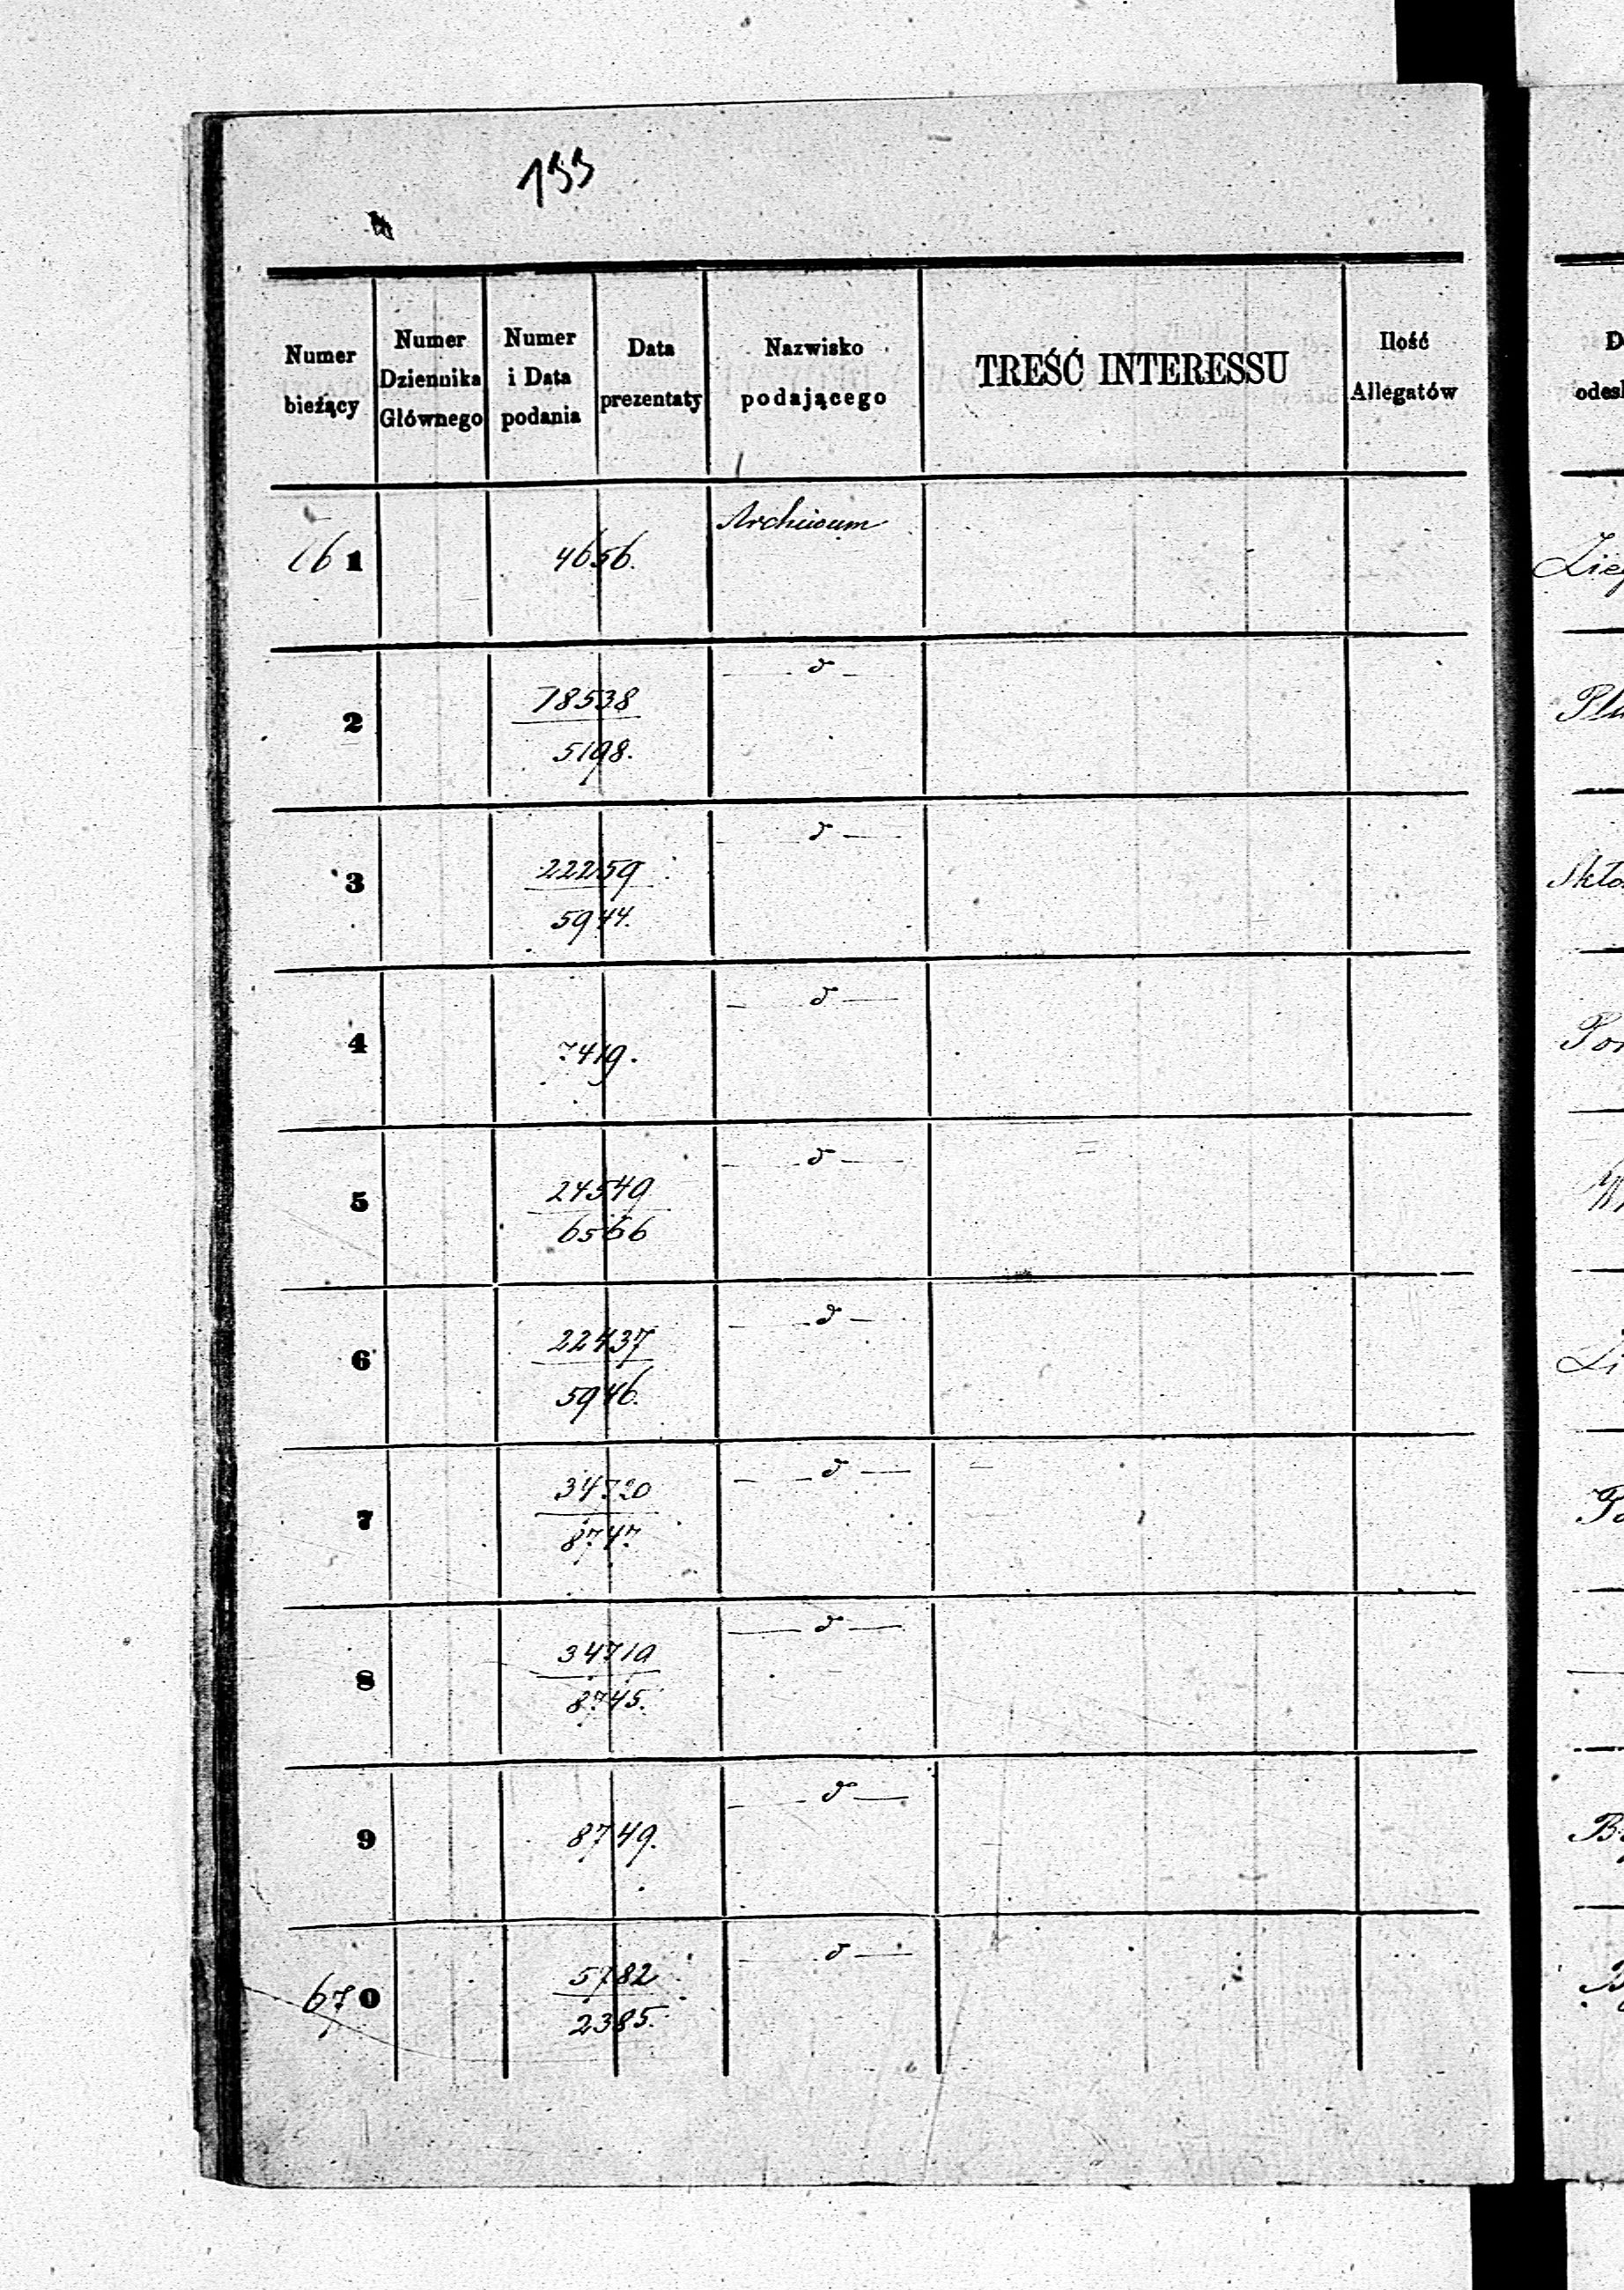 133
Numer bieżący
Numer Dziennika Głównego
Numer i Data podania
Data prezentaty
Nazwisko podającego
TREŚĆ INTERESSU
Ilość Allegatów
1 4656. Archiwum
2 18538 d
5198.
3 22259 d
5944.
4 7419. d
5 24549 d
6566
6 22437 d
5946.
7 34720 d
8747.
8 34719 d
8745.
9 8749. d
670 5782 d
2385.